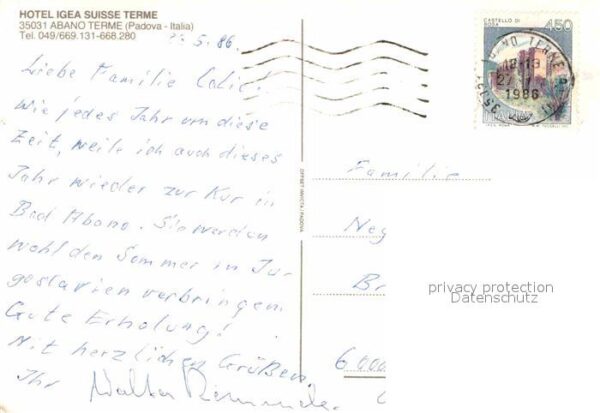 HOTEL IGEA SUISSE TERME
35031 ABANO TERME (Padova - Italia)
Tel. 049/669.131-668.280
.5.86.
Liebe Familie
Wie jedes Jahr um diese
Zeit, weile ich auch dieses
Jahr wieder zur Kur in
Bad Abano. Sie werden
wohl den Sommer in Ju-
goslavien verbringen
Gute Erholung!
Mit herzlichen Grüßen.
Ihr Walter
CASTELLO DI
450
1986
OFFSET INVICTA / PADOVA
Familie
Neg
Br
6000
privacy protection
Datenschutz